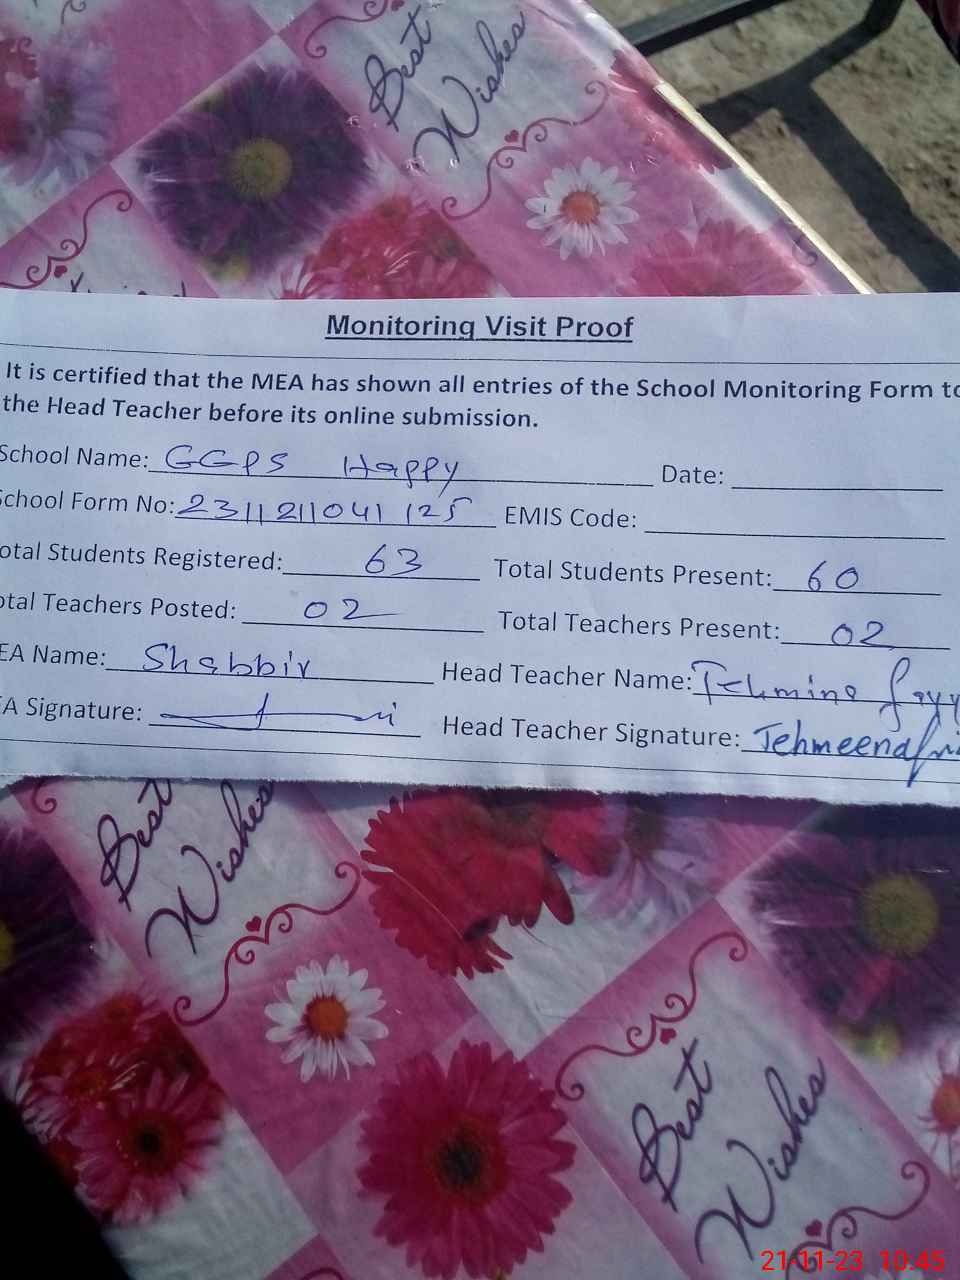 Best
Wishes
Monitoring Visit Proof
It is certified that the MEA has shown all entries of the School Monitoring Form to
the Head Teacher before its online submission.
School Name: GGPS Happy Date:
School Form No: 2311211041 125 EMIS Code:
otal Students Registered: 63 Total Students Present: 60
otal Teachers Posted: 02 Total Teachers Present: 02
EA Name: Shabbir Head Teacher Name: Tehmina
EA Signature: Head Teacher Signature: Tehmeena
Best
Wishes
Best
Wishes
21-11-23 10:45